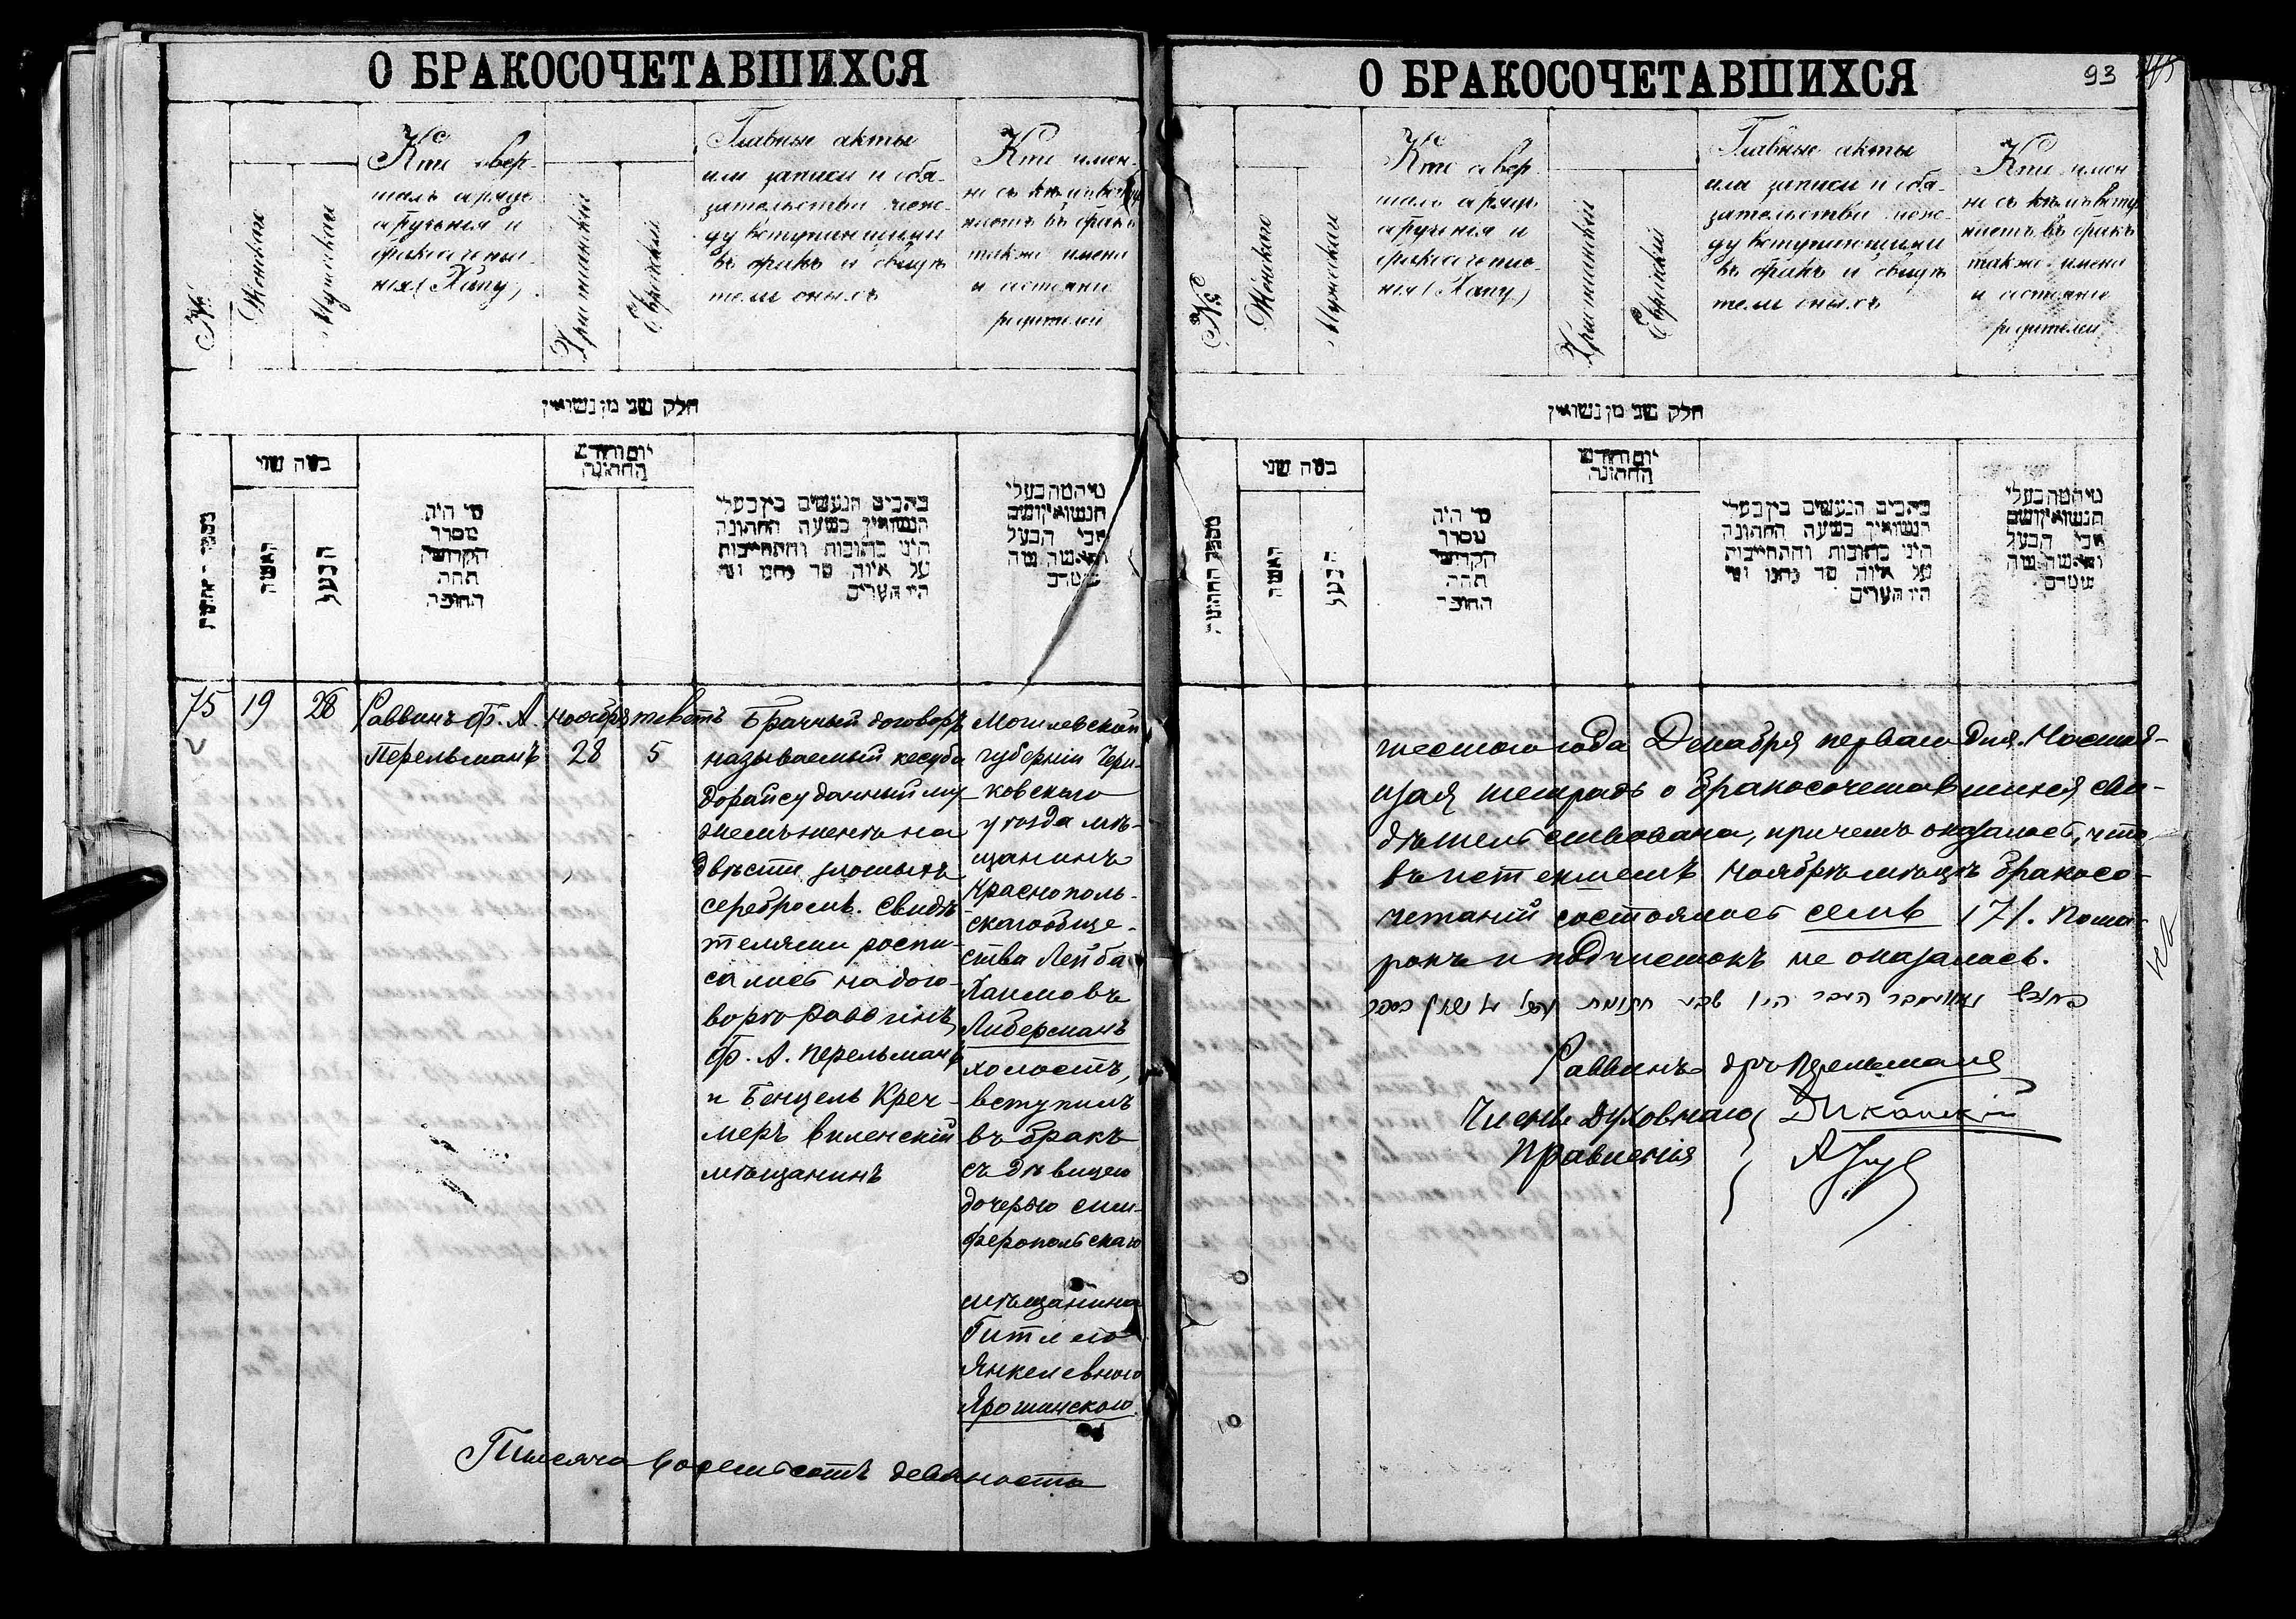 О БРАКОСОЧЕТАВШИХСЯ
№
Женская
Мужская
Кто совер-
шалъ обрядъ
обрученія и
бракосочета-
нія (Хипу)
Христіанскій
Еврейскій
Главные акты
или записи и обя-
зательства меж-
ду вступившими
въ бракъ и свидѣ-
тели оныхъ
Кто имен-
но съ кѣмъ всту-
паетъ въ бракъ
также имена
и состояніе
родителей
חלק שני מן נשואין
כמה שני
האשה
הבעל
מי היה
מסדר
החופה
יום וחדש
החתונה
הנעשים בין בעלי
הנשואין בשעה החתונה
היינו כתובות והתחייבות
75
19
28
Раввинъ Ф. А.
Перельманъ
Ноября
28
тевотъ
5
Брачный договоръ
называемый кесуба
дорайсу данный му-
жемъ женѣ на
двѣсти злотыхъ
серебромъ. Свидѣ-
телями роспи-
сались на дого-
ворѣ раввинъ
Ф. А. Перельманъ
и Бенцель Креч-
меръ виленскій
мѣщанинъ
Могилевской
губерніи Чери-
ковскаго
уѣзда мѣ-
щанинъ
Краснополь-
скаго обще-
ства Лейба
Хаимовъ
Либерманъ
холостъ,
вступилъ
въ бракъ
съ дѣвицею
дочерью сим-
феропольскаго
мѣщанина
Гитлею
Янкелевною
Ярошинскою
Тысяча восемьсотъ девяносто
О БРАКОСОЧЕТАВШИХСЯ
93
№
Женскаго
Мужеский
Кто совер-
шалъ обрядъ
обрученія и
бракосочета-
нія (Хапу)
Христіанскій
Еврейскій
Главные акты
или записи и обя-
зательства меж-
ду вступающими
въ бракъ и свидѣ-
тели оныхъ
Кто имен-
но съ кѣмъ всту-
паетъ въ бракъ
также имена
и состояніе
родителей
חלק שני מן נשואין
כמה שני
האשה
הבעל
מי היה
מסדר
החופה
יום וחדש
החתונה
הנעשים בין בעלי
הנשואין בשעה החתונה
היינו כתובות והתחייבות
шестого года Декабря перваго дня. Настоя-
щая тетрадь о бракосочетавшихся сви-
дѣтельствована, причемъ оказалось, что
въ истекшемъ Ноябрѣ мѣсяцѣ бракосо-
четаній состоялось семь (7). Пома-
рокъ и подчистокъ не оказалось.
Раввинъ др Перельманъ
Члены Духовнаго
Правленія